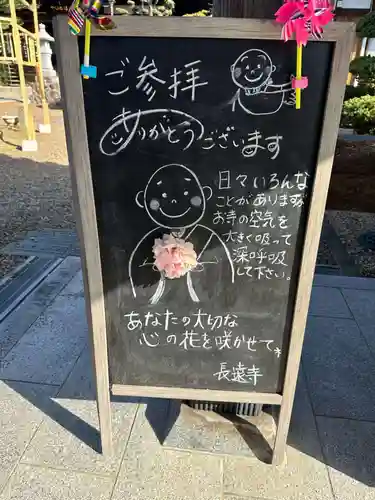 ご参拝
ありがとうございます
日々いろんな
ことがありますが
お寺の空気を
大きく吸って
深呼吸
して下さい。
あなたの大切な
心の花を咲かせて
長遠寺